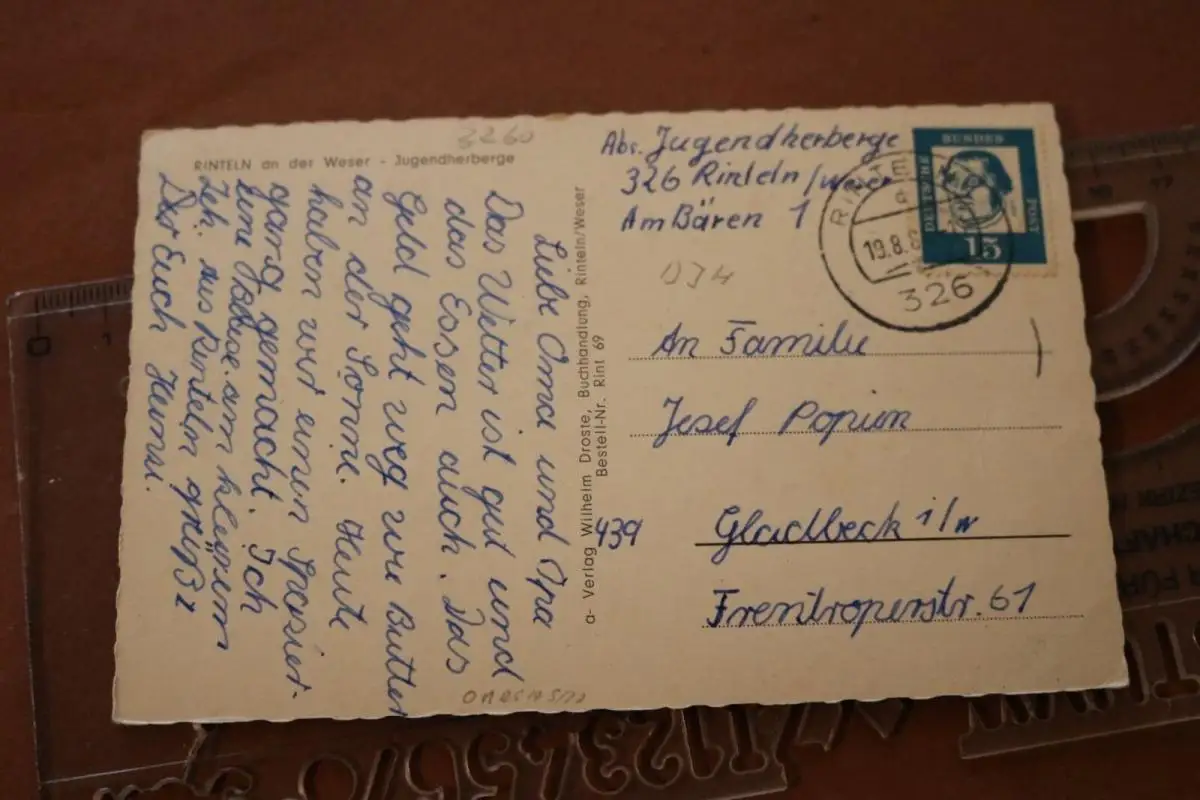 3260
RINTELN an der Weser - Jugendherberge
Liebe Oma und Opa
Das Wetter ist gut und
das Essen auch. Das
Geld geht weg wie Butter
an der Sonne. Heute
haben wir einen Spazier-
gang gemacht. Ich
am kleinen
Zeh. aus Rinteln grüßt
Der Euch Henni.
a- Verlag Wilhelm Droste, Buchhandlung, Rinteln/Weser
Bestell-Nr. Rint 69
Abs. Jugendherberge
326 Rinteln/Weser
Am Bären 1
DEUTSCHE BUNDES POST
15
19.8.6
326
DJH
An Familie
Josef Popium
439 Gladbeck i/W
Frentroperstr. 61
0 1
10 11